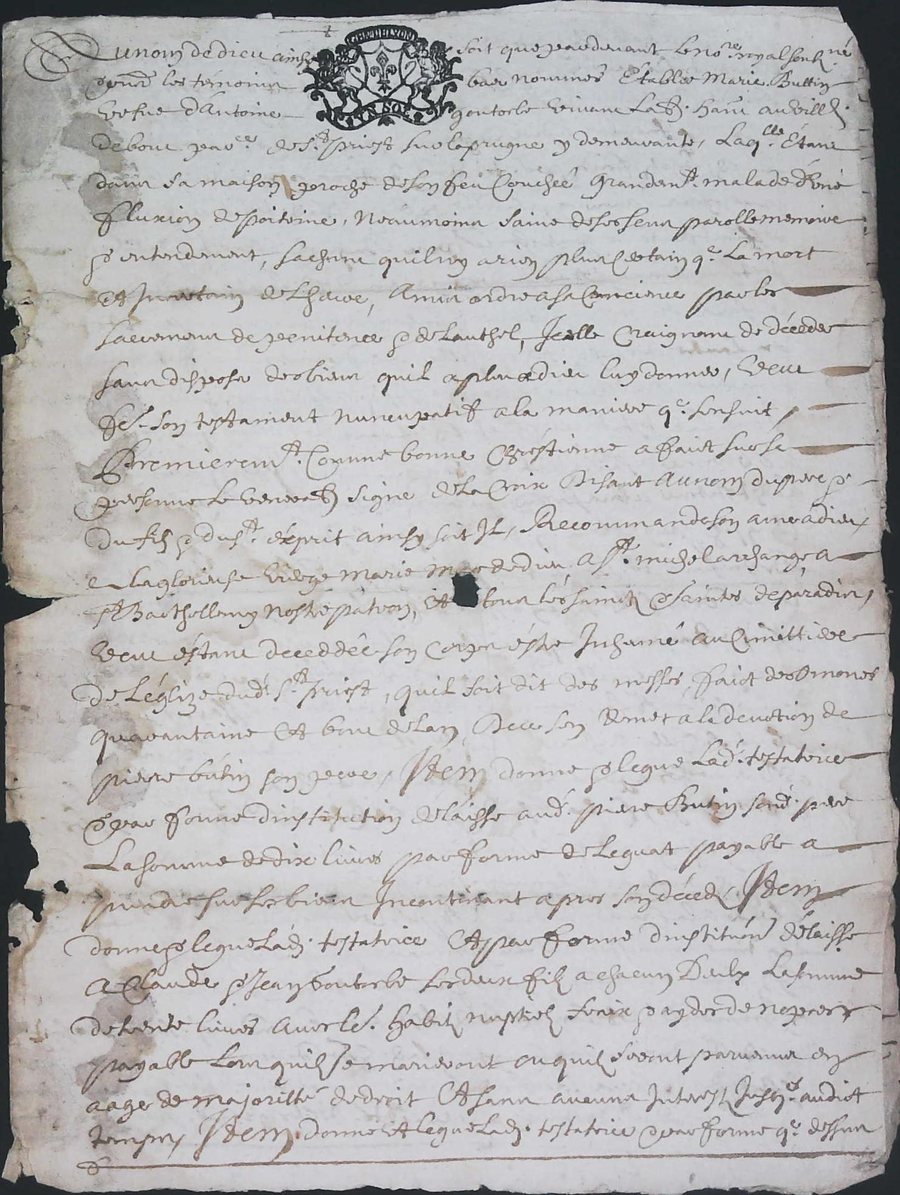 GEN DE LYON
Au nom de dieu ainsy soit que pardevant le no.re royal soub.né
& pnts les témoins bas nommés Establie Marie Buttin
vefue d'Antoine goutorbe vivant lab.r hab.t au vill.
de bout par.se de S.t priest sur laprugne y demeurante, Laq.lle Etant
dans sa maison proche de son feu Couchée grandem.t malade d'une
fluxion de poitrine, Neaumoins saine de ses sens parolle memoire
& entendement, sachant quil ny a rien plus Certain q.e La mort
et Incertain de Lheure, A mis ordre a sa Concience par les
sacremens de penitence & de Lauthel, Icelle Craignant de décéder
sans disposer des biens quil a plu a dieu luy donner, veut
fe.r son testament nuncupatif a la maniere q.e sensuit,
Premierem.t Comme bonne Chrestienne a fait sur sa
personne le venerab. signe de la Croix Disant Au nom du pere &
du fils & du s.t esprit ainsy soit Il, Recommande son ame a dieu,
a La glorieuse vierge Marie Mere de dieu a s.t michel archange, a
s.t Barthellemy nostre patron, et a tous les saincts & saintes de paradis,
veut éstant deceddée son Corps éstre Inhumé au Cimettiere
de Léglize dud. s.t priest, quil soit dit des messes faict des omones
quarantaine et bout de lan, Dece son Remet a la devotion de
pierre bûtin son pere, Item donne & legue Lad. testatrice
& par forme dinstitution delaisse aud. pierre Butin sond. pere
La somme de dix livres par forme de Legat payable a
prendre sur ses biens Incontinant apres son décéds, Item
donne & legue Lad. testatrice et par forme dinstitu.on délaisse
a Claude & Jean goutorbe ses deux fils a chacun Deulx La somme
de trente livres avec les. habits nuptiels
payable Lors quils se marieront ou quils seront parvenus en
aage de majorité de droit et sans aucuns Interest Jusq.e audict
temps, Item donne et legue Lad. testatrice & par forme q.e dessus